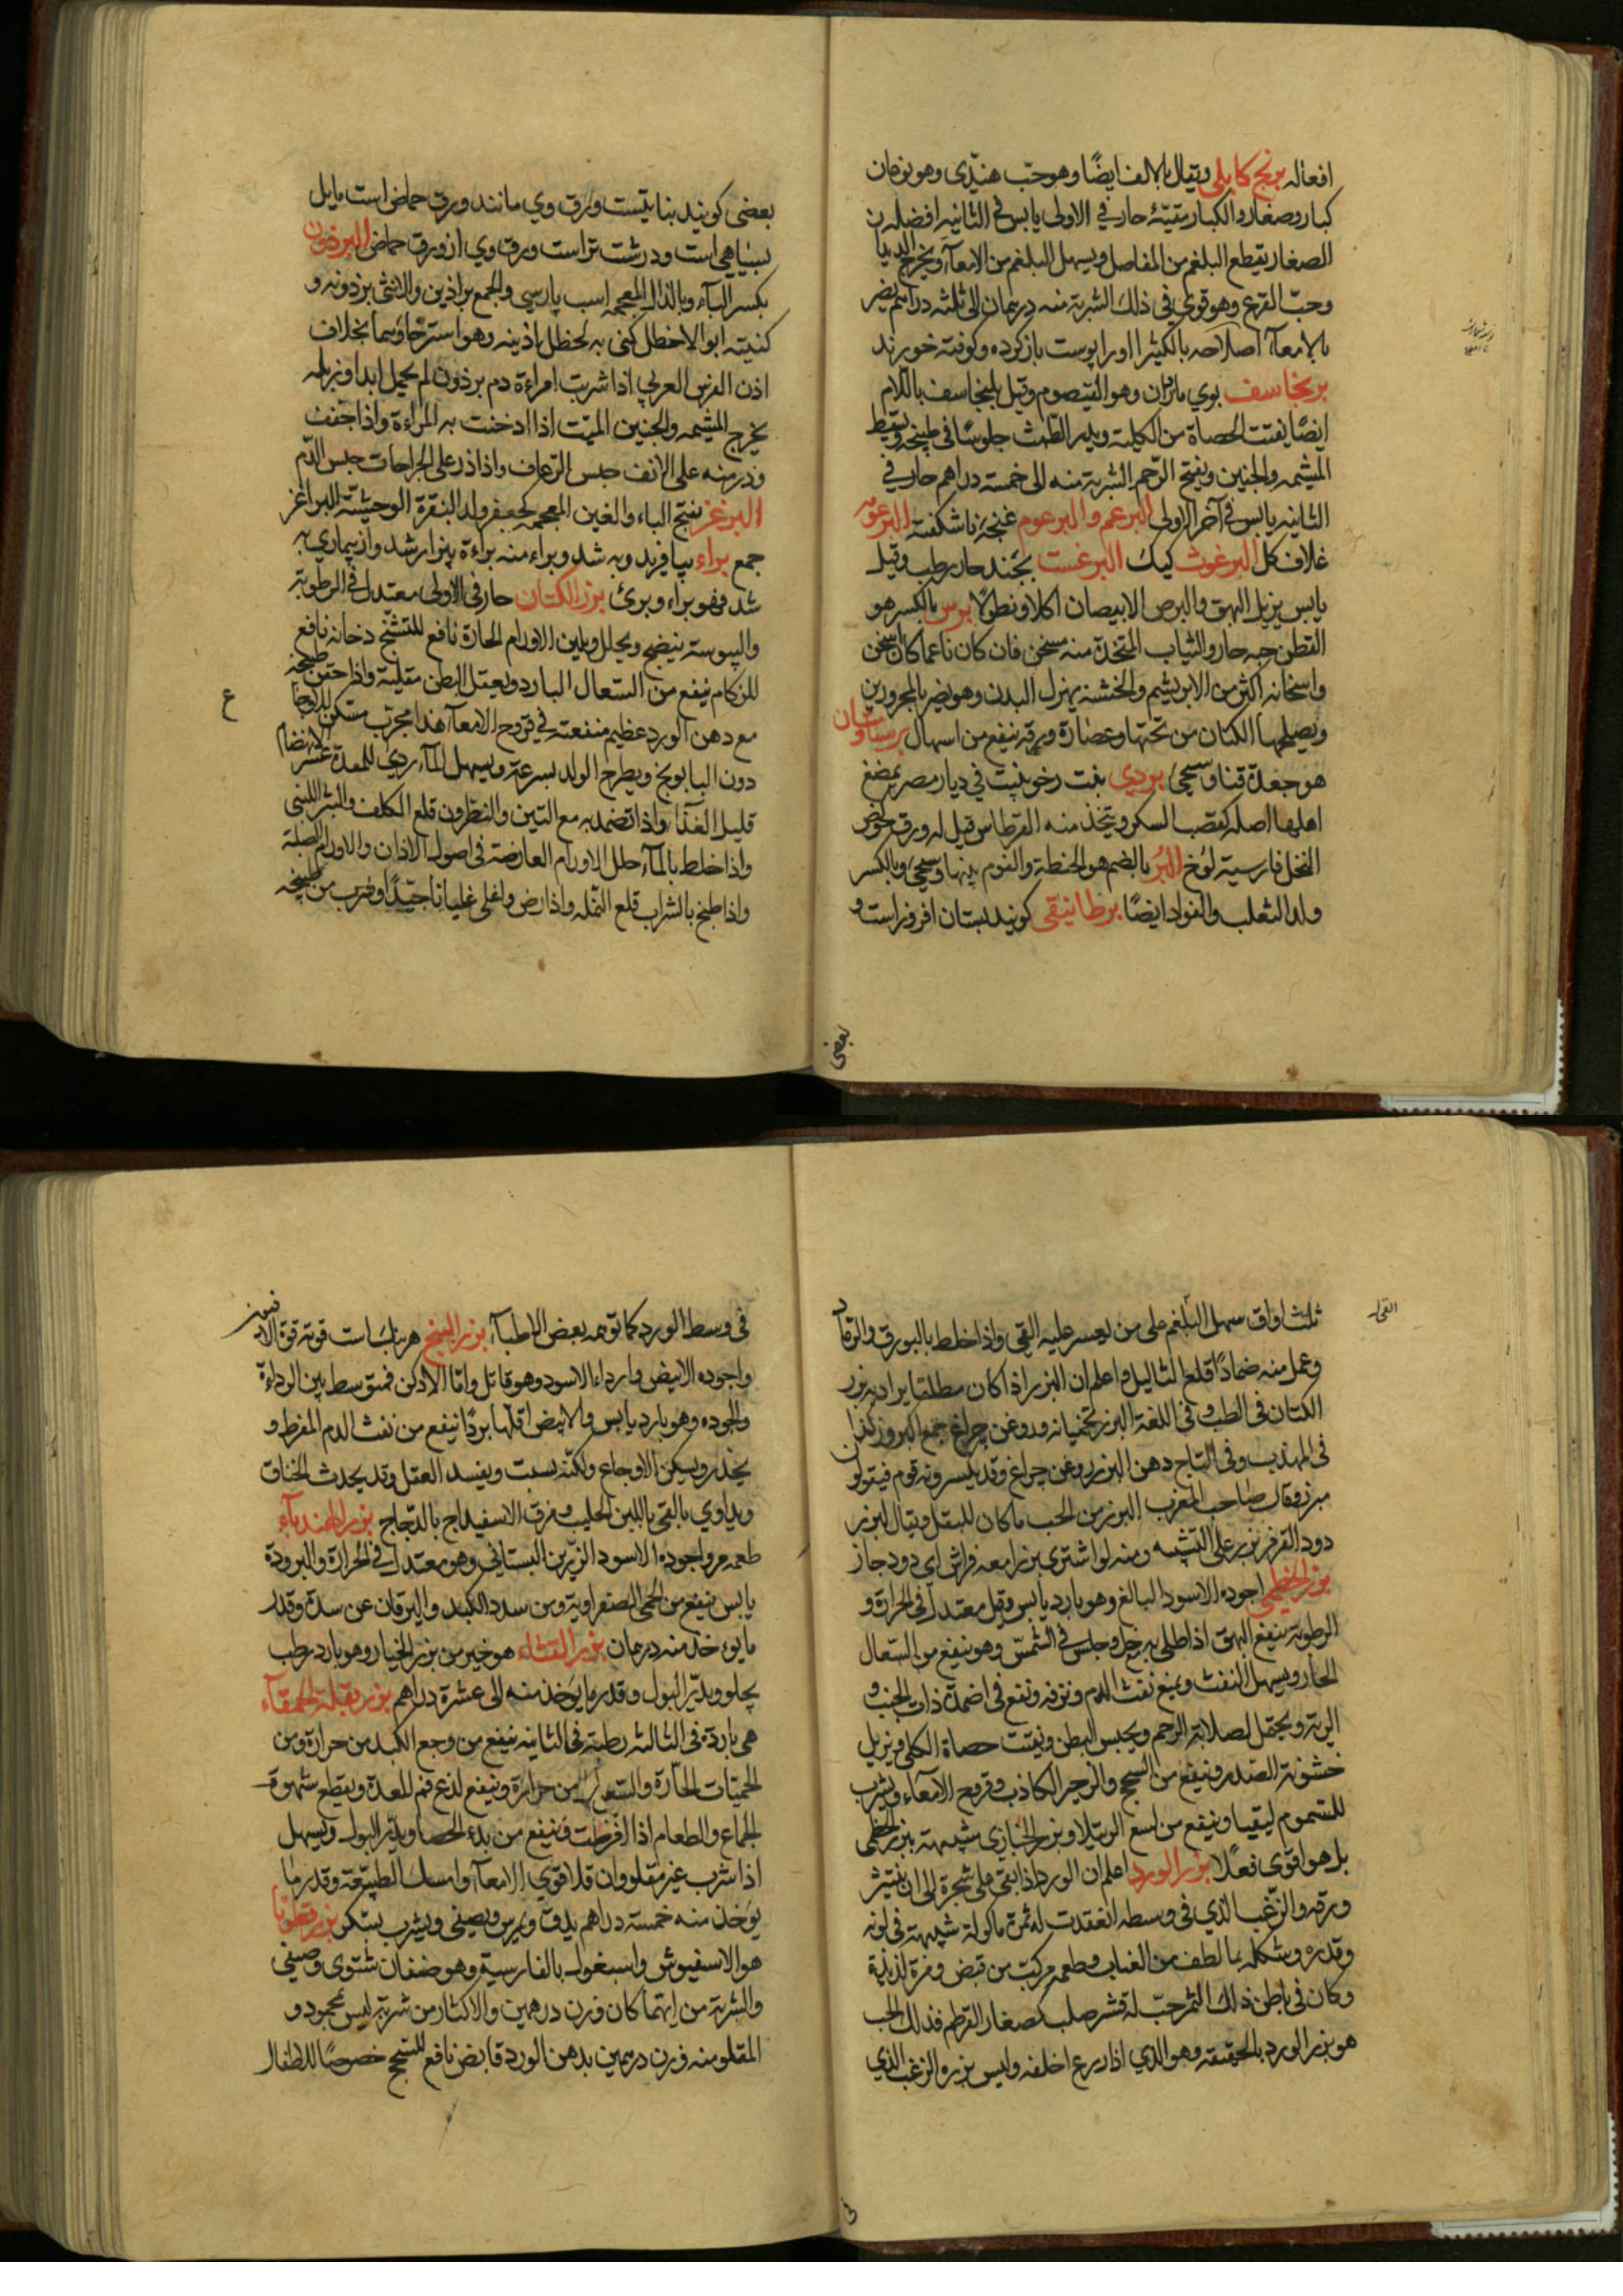 افعاله برنج کابلی ویقال بالالف ایضًا وهو حبّ هندّی وهو نوعان
کبار وصغار والکبار مقیّئة حار فی الاولی یابس فی الثانیه افضله من
الصغار یقطع البلغم من المفاصل ویسهل البلغم من الامعآء ویخرج الدیدان
وحبّ القرع وهو قوی فی ذلك الشربة منه درهمان الی ثلثه دراهم یضر
بالامعآء اصلاحه بالکثیرا اورا پوست باز کرده وکوفته خورند
برنجاسف بوی مادران وهو القیصوم وقیل بلنجاسف باللام
ایضًا یفتت الحصاة من الکلیة ویدر الطّمث جلوسًا فی طبیخه ویسقط
المشیمه والجنین ویفتح الرّحم الشربة منه الی خمسة دراهم حار فی
الثانیه یابس فی آخر الاولی البرعم والبرعوم غنچهٔ ناشکفته البرعومه
غلاف کل البرغوث کیك البرغست بجند حار رطب وقیل
یابس یزیل البهق والبرص الابیضان اکلا ونطولًا برس بالکسر هو
القطن حبه حار والثیاب المتخذة منه مسخن فان کان ناعما کان اسخن
واسخانه اکثر من الابریشم والخشنه یهزل البدن وهو یضر بالمحرورین
ویصلحها الکتان من تحتها وعصارة ورقه ینفع من اسهال برسیاوشان
هو جعدة قنا وسیجئ بردی نبت رخو ینبت فی دیار مصر یمضغ
اهلها اصله کقصب السکر ویتخذ منه القرطاس قیل له ورق کخوص
النخل فارسیة لوخ البُر بالضم هو الحنطة والفوم بینها وسیجئ وبالکسر
ولد الثعلب والفواد ایضًا برطانیقی کویند بستان افروز است و
بعضی
بعضی کویند بنا نیست وورق وی مانند ورق حماض است مایل
بسیاهی است ودرشت تر است ورق وی از ورق حماض البرذون
بکسر البآء وبالذال المعجمه اسب پارسی والجمع براذین والانثی برذونه و
کنیته ابو الاخطل کنی به لخطل اذنیه وهو استرخاؤهما بخلاف
اذن الفرس العربی اذا شربت امراءة دم برذون لم یحمل ابدا وزبله
یخرج المشیمه والجنین المیّت اذا ادخنت به المراءة واذا جفف
وذر منه علی الانف حبس الرّعاف واذا ذر علی الجراحات حبس الدّم
البرغز بفتح الباء والغین المعجمه کجعفر ولد البقرة الوحشیّة البراغز
جمع براء بیافرید وبه شد وبراء منه براءة بیزار شد واز بیماری به
شد فهو براء وبرئ بزر الکتان حار فی الاولی معتدل فی الرطوبة
والیبوسة ینضج ویحلل ویلین الاورام الحارة نافع للتشنّج دخانه نافع
للزکام ینفع من السّعال البارد ویعقل البطن مقلیة واذا حقن طبیخه
مع دهن الورد عظیم منفعته فی قروح الامعآء هذا مجرّب مسکن للاوجاع
دون البابونج ویطرح الولد بسرعة ویسهل المآء ردی للمعدة عسر الانهضام
قلیل الغذآء واذا تضمد به مع التین والنطرون قلع الکلف والبثر اللبنی
واذا خلط بالمآء حلل الاورام العارضة فی اصول الاذان والاورام الصلبة
واذا طبخ بالشراب قلع النّمله واذا رض واغلی غلیانا جیّدًا وشرب من طبیخه
ع
ثلث اواق سهل البلغم علی من یعسر علیه القی واذا خلط بالبورق والرماد
القی
وعمل منه ضمادًا قلع الثالیل واعلم ان البزر اذا کان مطلقا یراد به بزر
الکتان فی الطب وفی اللغة البزر تخمیانه وروغن چراغ جمع البروز کذا
فی المهذب وفی التاج دهن البزر روغن چراغ وقد یکسرونه قوم فیقولون
مبزر وقال صاحب المغرب البزر من الحب ما کان للبقل ویقال لبزر
دود القز بزر علی التشبیه ومنه لو اشتری بزرا معه فراش ای دود جاز
بزر الخطمی اجوده الاسود البالغ وهو بارد یابس وقیل معتدل فی الحرارة و
الرطوبة ینفع البهق اذا طلی به بخل وجلس فی الشمس وهو ینفع من السّعال
الحار ویسهل النفث ویمنع نفث الدم ونزفه وینفع فی اضمدة ذات الجنب و
الریة ویحقل لصلابة الرحم ویحبس البطن ویفتت حصاة الکلی ویزیل
خشونة الصدر وینفع من السحج والزحیر الکاذب وقروح الامعآء ویشرب
للسموم لیقیا وینفع من لسع الرتیلا وبزر الخبازی شبیهة ببزر الخطمی
بل هو اقوی فعلًا بزر الورد اعلم ان الورد اذا بقی علی شجرة الی ان ینتثر
ورقه والزغب الذی فی وسطه انعقدت له ثمرة ماکولة شبیهة فی لونه
وقدره وشکله بما لطف من العناب وطعمه مرکب من قبض ومزة لذیذة
وکان فی باطن ذلك الثمر حبّ له قشر صلب کصغار القرطم فذلك الحب
هو بزر الورد بالحقیقة وهو الذی اذا زرع اخلفه ولیس بزره الزغب الذی
فی
فی وسط الورد کما توهمه بعض الاطبآء بزر البنج هر بنك است قوته قوة الافیون
واجوده الابیض وارداء الاسود وهو قاتل وامّا الادکن فمتوسط بین الرداءة
والجوده وهو بارد یابس والابیض اقلها بردًا ینفع من نفث الدم المفرط و
یخدر ویسکن الاوجاع ولکنّه یسبت ویفسد العقل وقد یحدث الخناق
ویداوی بالقی باللبن الحلیب ومرق الاسفیداج بالدّجاج بزر الهندبآء
طعمه مر واجوده الاسود الرزین البستانی وهو معتدل فی الحرارة والبرودة
یابس ینفع من الحمی الصفراویة ومن سدد الکبد والیرقان عن سدة وقدر
ما یوءخذ منه درهمان بزر القثاء هو خیر من بزر الخیار وهو بارد رطب
یجلو ویدرّ البول وقدر ما یوخذ منه الی عشرة دراهم بزر بقلة الحمقآء
هی باردة فی الثالثه رطبة فی الثانیه ینفع من وجع الکبد من حرارة ومن
الحمیّات الحارّة والسّعال من حرارة وینفع لذع فم المعدة ویقطع شهوة
الجماع والطعام اذا افرطت وینفع من بدء الحصا ویدرّ البول ویسهل
اذا شرب غیر مقلو وان قلا قوی الامعآء وامسك الطبیعة وقدر ما
یوخذ منه خمسة دراهم یدق ویمرس ویصفی ویشرب بسکر بزر قطونا
هو الاسفیوش واسبغول بالفارسیة وهو صنفان شتوی وصیفی
والشربة من ایتهما کان وزن درهمین والاکثار من شربة لیس بمحمود و
المقلو منه وزن درهمین بدهن الورد قابض نافع للسحج خصوصًا للاطفال